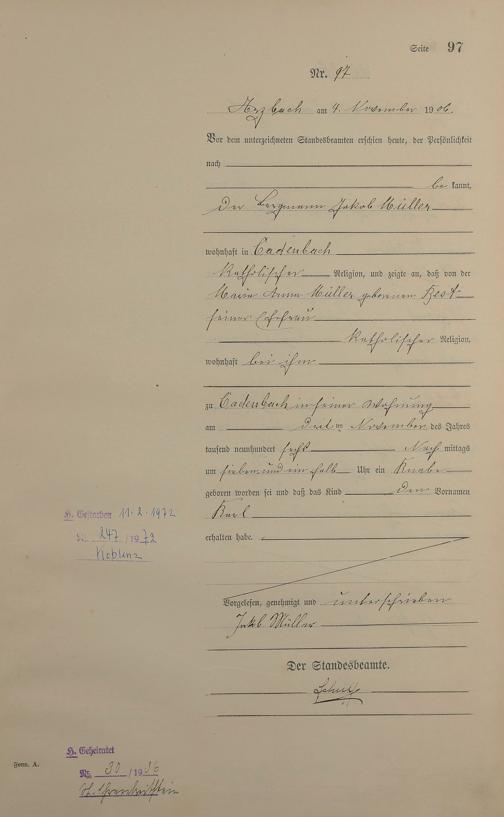 Seite 97
Nr. 97
Arzbach am 4. November 1906.
Vor dem unterzeichneten Standesbeamten erschien heute, der Persönlichkeit
nach
be kannt,
der Bergmann Jakob Müller
wohnhaft in Cadenbach
katholischer Religion, und zeigte an, daß von der
Maria Anna Müller geborenen
seiner Ehefrau
katholischer Religion,
wohnhaft bei ihm
zu Cadenbach in seiner Wohnung
am dritten November des Jahres
tausend neunhundert sechs Nach mittags
um sieben und ein halb Uhr ein Knabe
geboren worden sei und daß das Kind den Vornamen
Karl
erhalten habe.
H. Gestorben 11.2.1972
247 /1972
Koblenz
Vorgelesen, genehmigt und unterschrieben
Jakob Müller
Der Standesbeamte.
H. Geheiratet
Nr. 30 /1936
Form. A.